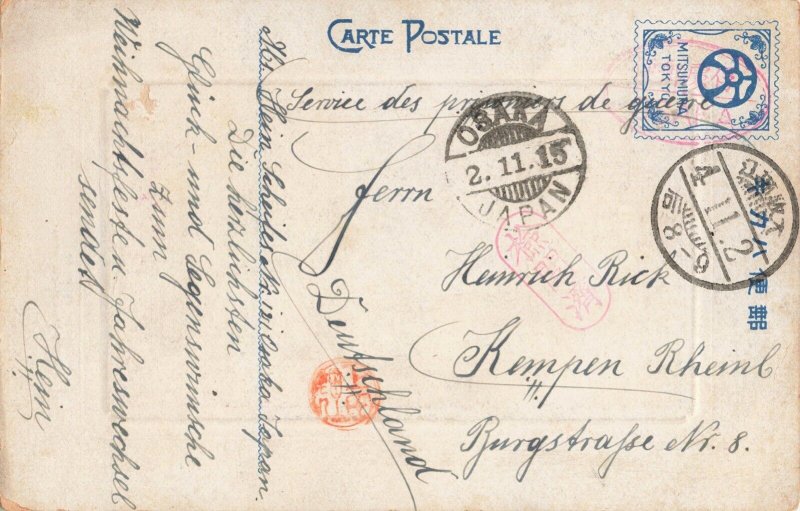 CARTE POSTALE
MITSUMURA
TOKYO
Service des prisonniers de guerre
OSAKA
2.11.15
JAPAN
Herrn
Heinrich Rick
Kempen Rheinl
Burgstraße Nr. 8.
Deutschland
郵便ハカキ
4.11.2
Osaka Japan.
Die herzlichsten
Glück- und Segenswünsche
zum
Weihnachtsfeste u. Jahreswechsel
sendet
Hein